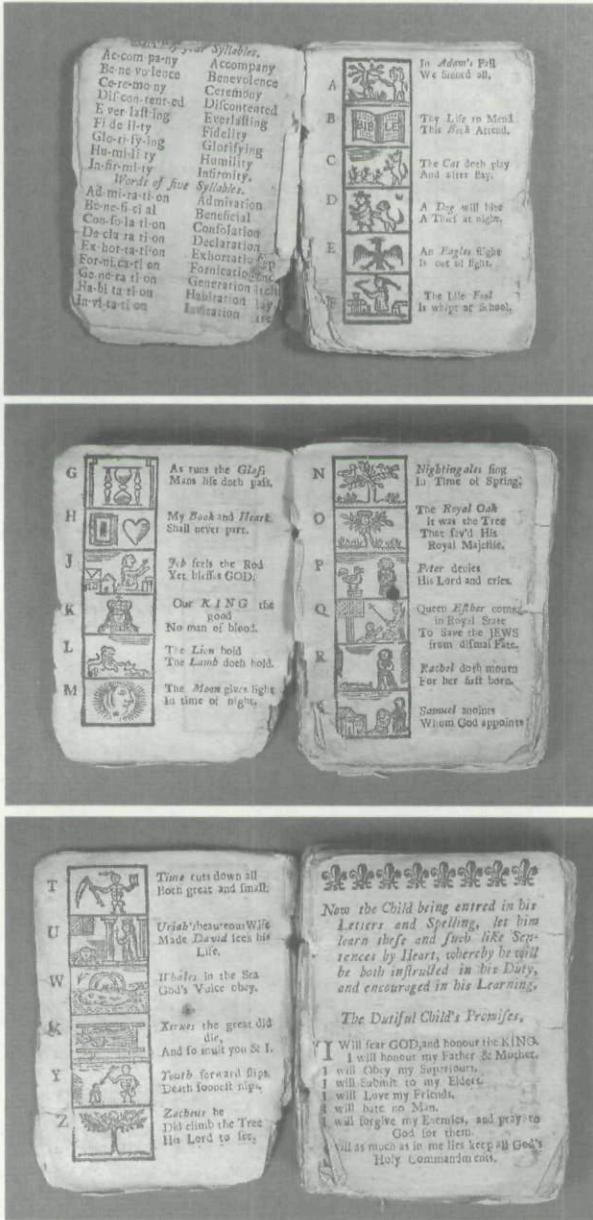 Syllables.
Ac-com-pa-ny Accompany
Be-ne-vo-lence Benevolence
Ce-re-mo-ny Ceremony
Diſ-con-tent-ed Diſcontented
E-ver-laſt-ing Everlaſting
Fi-de-li-ty Fidelity
Glo-ri-fy-ing Glorifying
Hu-mi-li-ty Humility
In-fir-mi-ty Infirmity.
Words of five Syllables.
Ad-mi-ra-ti-on Admiration
Be-ne-fi-ci-al Beneficial
Con-ſo-la-ti-on Conſolation
De-cla-ra-ti-on Declaration
Ex-hor-ta-ti-on Exhortation
For-ni-ca-ti-on Fornication
Ge-ne-ra-ti-on Generation
Ha-bi-ta-ti-on Habitation
In-vi-ta-ti-on Invitation
A
In Adam's Fall
We Sinned all.
B
BIBLE
Thy Life to Mend
This Book Attend.
C
The Cat doth play
And after ſlay.
D
A Dog will bite
A Thief at night.
E
An Eagles flight
Is out of ſight.
F
The Idle Fool
Is whipt at School.
G
As runs the Glaſs
Mans life doth paſs.
H
My Book and Heart
Shall never part.
J
Job feels the Rod
Yet bleſſes GOD.
K
Our KING the
good
No man of blood.
L
The Lion bold
The Lamb doth hold.
M
The Moon gives light
In time of night.
N
Nightingales ſing
In Time of Spring.
O
The Royal Oak
it was the Tree
That ſav'd His
Royal Majeſtie.
P
Peter denies
His Lord and cries.
Q
Queen Eſther comes
in Royal State
To Save the JEWS
from diſmal Fate.
R
Rachel doth mourn
For her firſt born.
S
Samuel anoints
Whom God appoints
T
Time cuts down all
Both great and ſmall.
U
Uriah's beauteous Wife
Made David ſeek his
Life.
W
Whales in the Sea
God's Voice obey.
X
Xerxes the great did
die,
And ſo muſt you & I.
Y
Youth forward ſlips
Death ſooneſt nips.
Z
Zacheus he
Did climb the Tree
His Lord to ſee,
Now the Child being entred in his
Letters and Spelling, let him
learn theſe and ſuch like Sen-
tences by Heart, whereby he will
be both inſtructed in his Duty,
and encouraged in his Learning.
The Dutiful Child's Promiſes,
I Will fear GOD, and honour the KING.
I will honour my Father & Mother.
I will Obey my Superiours.
I will Submit to my Elders.
I will Love my Friends.
I will hate no Man.
I will forgive my Enemies, and pray to
God for them.
will as much as in me lies keep all God's
Holy Commandments.